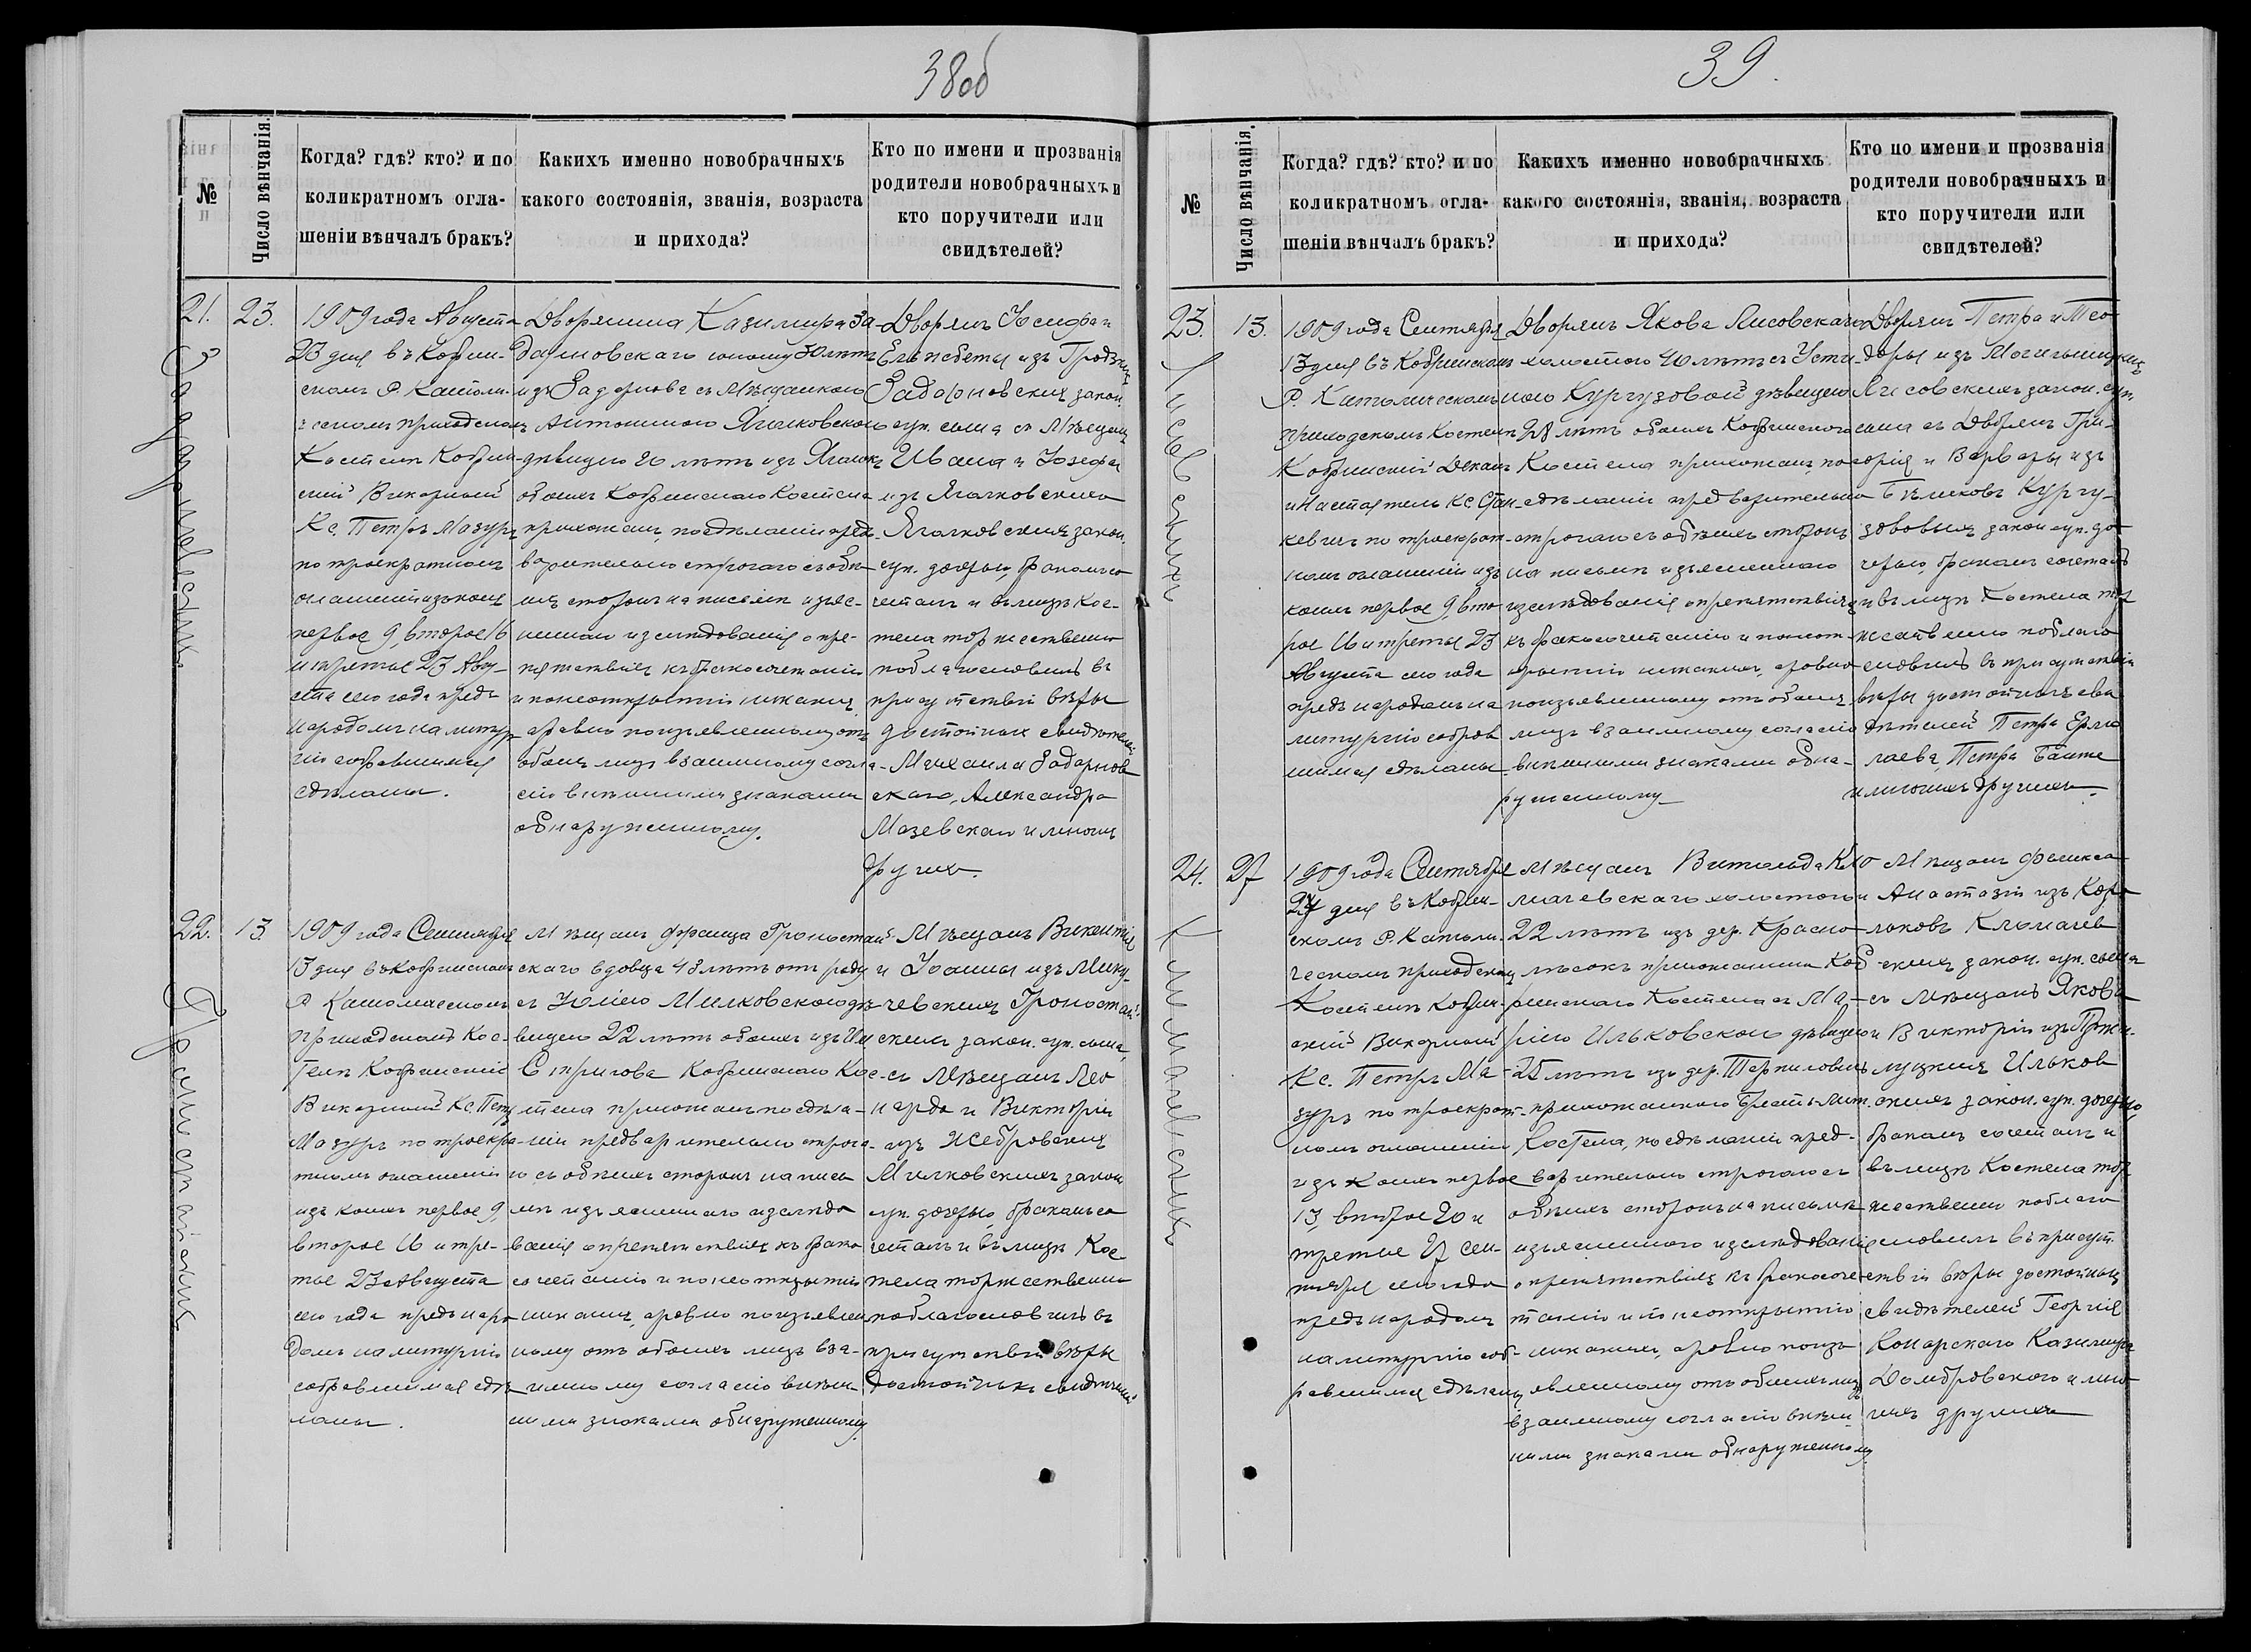 38об
№
Число вѣнчанія.
Когда? гдѣ? кто? и по
коликратномъ огла-
шеніи вѣнчалъ бракъ?
Какихъ именно новобрачныхъ
какого состоянія, званія, возраста
и прихода?
Кто по имени и прозванія
родители новобрачныхъ и
кто поручители или
свидѣтелей?
21.
23.
1909 года Августа
23 дня въ Кобрин-
скомъ Р. Католи-
ческомъ приходскомъ
Костелѣ Кобрин-
скій Викарный
Кс. Петръ Мазуръ
по троекратномъ
оглашеніи изъ коихъ
первое 9, второе 16
и третье 23 Авгу-
ста сего года предъ
народомъ на литур-
гію собравшимся
сдѣланы.
Дворянина Казимира За-
дарновскаго юношу 30 лѣтъ
изъ Задернова съ Мѣщанкою
Антониною Ягалковскою
дѣвицею 20 лѣтъ изъ Яголкъ
обоихъ Кобринскаго Костела
прихожанъ, по сдѣланіи пред-
варительно строгаго съ обѣ-
ихъ сторонъ на письмѣ изъяс-
неннаго изслѣдованія о пре-
пятствіяхъ къ бракосочетанію
и по неоткрытіи никакихъ,
а равно по изъявленному отъ
обоихъ лицъ взаимному согла-
сію внѣшними знаками
обнаруженному.
Дворянъ Юсифа и
Елисабеты изъ
Задорновскихъ закон.
суп. сына съ Мѣщанъ
Ивана и Юзефы
изъ Ягалковскихъ
Ягалковскихъ закон.
суп. дочерью, бракомъ со
четалъ и въ лицѣ Кос-
тела торжественно
поблагословилъ въ
присутствіи вѣры
достойныхъ свидѣтелей
Михаила Задарнов
скаго, Александра
Мазевскаго и многихъ
другихъ.
Задарновскихъ
22.
13.
1909 года Сентября
13 дня въ Кобринскомъ
Р. Католическомъ
приходскомъ Кос-
телѣ Кобринскій
Викарный Кс. Петръ
Мазуръ по троекра-
тномъ оглашеніи
изъ коихъ первое 9,
второе 16 и тре-
тье 23 Августа
сего года предъ наро-
домъ на литургію
собравшимся сдѣ-
ланы.
Мѣщанъ Франца Гроностай-
скаго вдовца 43 лѣтъ отъ роду
съ Юліею Милковскою дѣ-
вицею 22 лѣтъ обоихъ изъ Им
Стригова Кобринскаго Кос-
тела прихожанъ по сдѣла-
ніи предварительно строга-
го съ обѣихъ сторонъ на пись
мѣ изъясненнаго изслѣдо
ванія о препятствіяхъ къ брако
сочетанію и по неоткрытіи
никакихъ, а равно по изъявлен
ному отъ обоихъ лицъ вза-
имному согласію внѣш-
ними знаками обнаруженному
Мѣщанъ Викентія
и Іоанны изъ Мику-
чевскихъ Гроностай-
скихъ закон. суп. сына,
съ Мѣщанъ Лео
нарда и Викторіи
изъ Жебровскихъ
Милковскихъ закон
суп. дочерью, бракомъ со
четалъ и въ лицѣ Кос
тела торжественно
поблагословилъ въ
присутствіи вѣры
достойныхъ свидѣтелей
Гроностайскихъ
39.
№
Число вѣнчанія.
Когда? гдѣ? кто? и по
коликратномъ огла-
шеніи вѣнчалъ бракъ?
Какихъ именно новобрачныхъ
какого состоянія, званія, возраста
и прихода?
Кто по имени и прозванія
родители новобрачныхъ и
кто поручители или
свидѣтелей?
23.
13.
1909 года Сентября
13 дня въ Кобринскомъ
Р. Католическомъ
приходскомъ Костелѣ
Кобринскій Деканъ
и Настоятель Кс. Стан-
кевичъ по троекрат-
номъ оглашеніи изъ
коихъ первое 9, вто-
рое 16 и третье 23
Августа сего года
предъ народомъ на
литургію собрав
шимся сдѣланы
Дворянъ Якова Лисовскаго
холостого 40 лѣтъ съ Усти-
ною Кургузовой дѣвицею
28 лѣтъ обоихъ Кобринского
Костела прихожанъ, по
сдѣланіи предварительно
строгаго съ обѣихъ сторонъ
на письмѣ изъясненнаго
изслѣдованія о препятствіяхъ
къ бракосочетанію и по неот-
крытіи никакихъ, а равно
по изъявленному отъ обоихъ
лицъ взаимному согласію
внѣшними знаками обна-
руженному
Дворянъ Петра и Тео-
доры изъ
Лисовскихъ закон. суп.
сына съ Дворянъ Гри-
горія и Варвары изъ
Бѣликовъ Кургу-
зовыхъ закон суп. до
черью, бракомъ сочеталъ
и въ лицѣ Костела тор
жественно поблаго
словилъ въ присутствіи
вѣры достойныхъ сви
дѣтелей Петра Ермо
лаева, Петра Банте
и многихъ другихъ
Лисовскихъ
24.
27
1909 года Сентября
27 дня въ Кобрин-
скомъ Р. Католи-
ческомъ приходскомъ
Костелѣ Кобрин-
скій Викарный
Кс. Петръ Ма-
зуръ по троекрат-
номъ оглашеніи
изъ коихъ первое
13, второе 20 и
третье 27 Сен-
тября сего года
предъ народомъ
на литургію соб-
равшимся сдѣланы
Мѣщанъ Витольда Кли
мачевскаго холостого
22 лѣтъ изъ дер. Красно-
лѣсокъ прихожанина Коб
ринскаго Костела съ Ма-
ріею Ильковскою дѣвицею
25 лѣтъ изъ дер. Терпиловичъ
прихожанкою Брестъ-Лит.
Костела, по сдѣланіи пред-
варительно строгаго съ
обѣихъ сторонъ на письмѣ
изъясненнаго изслѣдованія
о препятствіяхъ къ бракосоче-
танію и по неоткрытію
никакихъ, а равно по изъ
явленному отъ обоихъ лицъ
взаимному согласію внѣш-
ними знаками обнаруженному
Мѣщанъ Феликса
и Анастазіи изъ Коро
льковъ Климачев
скихъ закон. суп. сына
съ Мѣщанъ Якова
и Викторіи изъ
Ильков
скихъ закон. суп. дочерью,
бракомъ сочеталъ и
въ лицѣ Костела тор
жественно поблаго
словилъ въ присут-
ствіи вѣры достойныхъ
свидѣтелей Георгія
Конарскаго Казимира
Домбровского и мно
гихъ другихъ
Климачевскихъ